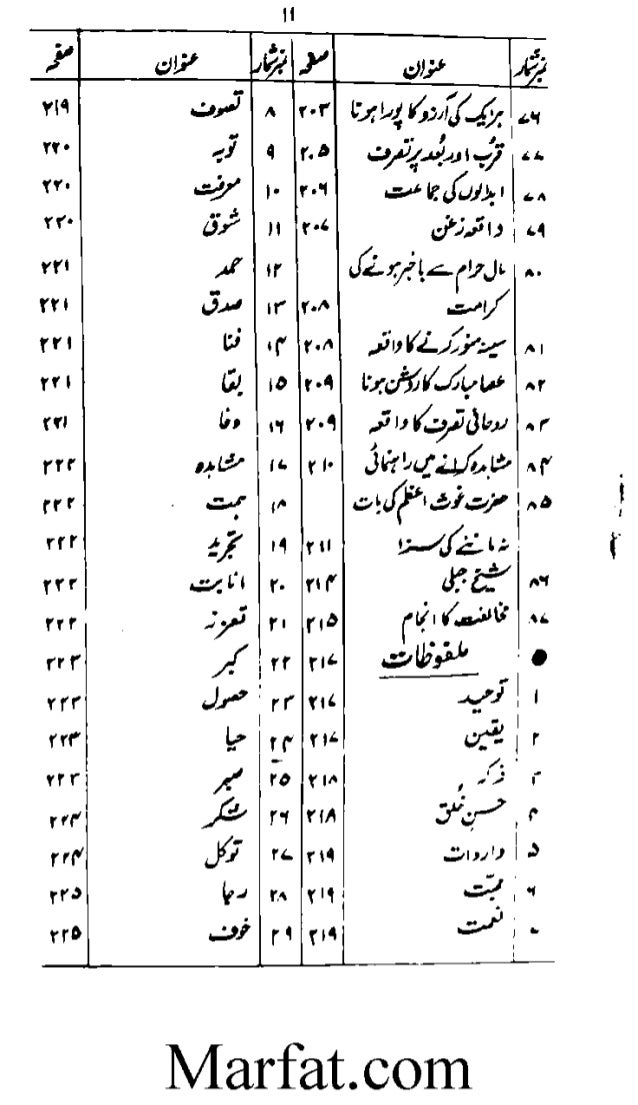 ۱۱
نمبرشمار عنوان صفحہ نمبرشمار عنوان صفحہ
۷۶ ہر ایک کی آرزو کا پورا ہونا ۲۰۳ ۸ تصوف ۲۱۹
۷۷ قرب اور بُعد پر تصرف ۲۰۵ ۹ توبہ ۲۲۰
۷۸ ابدالوں کی جماعت ۲۰۶ ۱۰ معرفت ۲۲۰
۷۹ واقعہ زعن ۲۰۷ ۱۱ شوق ۲۲۰
۸۰ مال حرام سے باخبر ہونے کی ۱۲ حمد ۲۲۱
کرامت ۲۰۸ ۱۳ صدق ۲۲۱
۸۱ سینہ منور کرنے کا واقعہ ۲۰۸ ۱۴ فنا ۲۲۱
۸۲ عصا مبارک کا روشن ہونا ۲۰۹ ۱۵ بقا ۲۲۱
۸۳ روحانی تصرف کا واقعہ ۲۰۹ ۱۶ وفا ۲۲۱
۸۴ مشاہدہ کرانے میں راہنمائی ۲۱۰ ۱۷ مشاہدہ ۲۲۲
۸۵ حضرت غوث اعظم کی بات ۱۸ ہمت ۲۲۲
نہ ماننے کی سزا ۲۱۱ ۱۹ تجرید ۲۲۲
۸۶ شیخ جبلی ۲۱۴ ۲۰ انابت ۲۲۲
۸۷ مخالفت کا انجام ۲۱۵ ۲۱ تعزز ۲۲۲
● ملفوظات ۲۱۷ ۲۲ کبر ۲۲۳
۱ توحید ۲۱۷ ۲۳ حصول ۲۲۳
۲ یقین ۲۱۷ ۲۴ حیا ۲۲۳
۳ ذکر ۲۱۸ ۲۵ صبر ۲۲۳
۴ حسن خُلق ۲۱۸ ۲۶ شکر ۲۲۴
۵ واردات ۲۱۹ ۲۷ توکل ۲۲۴
۶ محبت ۲۱۹ ۲۸ رجا ۲۲۵
۷ نعمت ۲۱۹ ۲۹ خوف ۲۲۵
Marfat.com